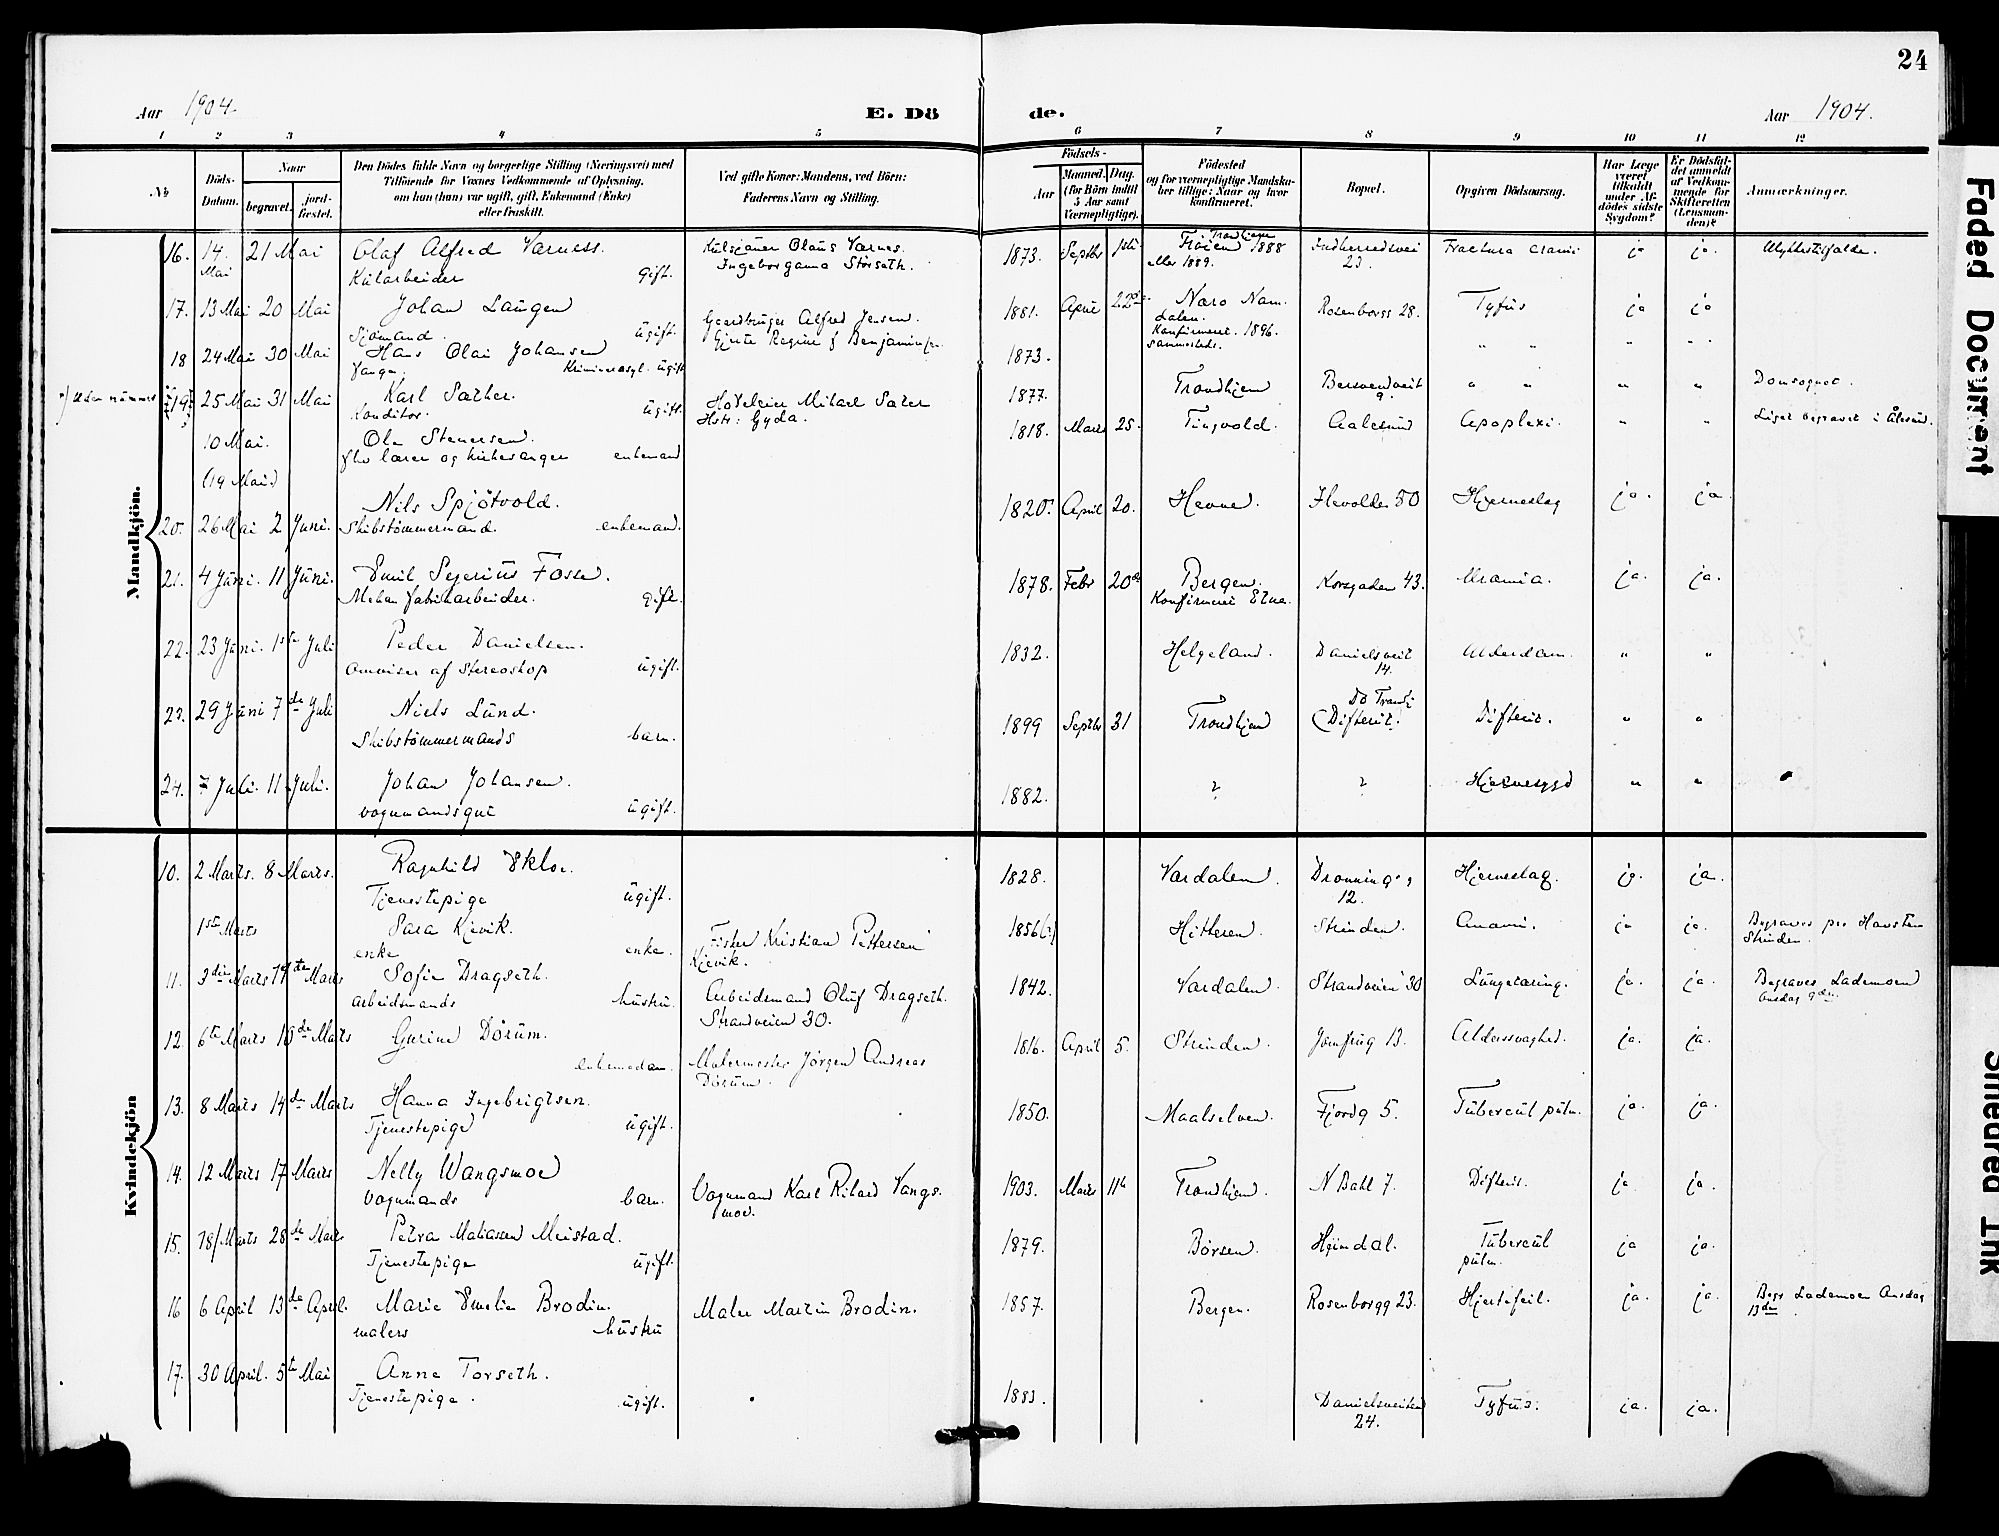 24
Aar 1904. E. Dö de. Aar 1904.
1 2 3 4 5 6 7 8 9 10 11 12
No
Döds-Datum.
Naar
begravet.
jord-fæstet.
Den Dödes fulde Navn og borgerlige Stilling (Næringsvei) med
Tilföiende for Voxnes Vedkommende af Oplysning,
om han (hun) var ugift, gift, Enkemand (Enke)
eller fraskilt.
Ved gifte Koner: Mandens, ved Börn:
Faderens Navn og Stilling.
Födsels-
Aar
Maaned. Dag.
(for Börn indtil
5 Aar samt
Værnepligtige).
Födested
og for værnepligtige Mandska-
ber tillige: Naar og hvor
konfirmeret.
Bopæl.
Opgiven Dödsaarsag.
Har Læge
været
tilkaldt
under Af-
dödes sidste
Sygdom?
Er Dödsfal-
det anmeldt
af Vedkom-
mende for
Skifteretten
(Lensman-
den)?
Anmærkninger.
Mandkjön.
16. 14. Mai 21 Mai Olaf Alfred Varness. Kulsjauer Olaus Varnes. 1873. Septbr Trondhjem 1888 Indherredsvei Fractura cranii ja ja. Ulykkestilfælde.
Kularbeider gift. Ingeborganna Störseth. eller 1889. 23.
17. 13 Mai 20 Mai Johan Laugen Gaardbruger Alfred Jensen. 1881. April 22 Næro Nam- Rosenborgg 28. Tyfus ja ja
Sjömand. ugift. dalen. Konfirmeret. 1896. sammesteds.
18 24 Mai 30 Mai Hans Olai Johansen 1873. " " " "
Fange. Kriminalasyl. ugift
19 25 Mai 31 Mai Karl Sæther. Hoteleier Mikael Sæter 1877. Trondhjem " " " " Domsognet.
Konditor. ugift. Hstr: Gyda.
10 Mai. Ole Stenersen. 1818. Marts 25. Tingvold. Aalesund Apoplexi. " " Liget begravet i Ålesund.
fhv lærer og kirkesanger enkemand
(19 Mai)
20. 26 Mai 2 Juni. Nils Spjötvold. 1820 April 20. Hevne. Ilevolden 50 Hjerneslag ja. ja
Skibstömmermand. enkemand.
21. 4 Juni. 11 Juni. Emil Sejerius Fosse. 1878. Febr 20de Bergen. Korsgaden 43. Uræmia. ja. ja.
Mekan fabrikarbeider. gift. Konfirmeret Etne.
22. 23 Juni. 1ste Juli Peder Danielsen. 1832. Helgeland. Danielsveit 14. Alderdom. " "
Omviser af Stereoskop ugift.
23. 29 Juni 7de Juli Niels Lund. 1899 Septbr 31 Trondhjem (Difterit. Difterit. " "
Skibstömmermands barn.
24. 7 Juli. 11 Juli. Johan Johansen. 1882. ? ? Hjernesygd " "
vognmandsgut ugift.
Kvindekjön
10. 2 Marts. 8 Marts. Ragnhild Eklo. 1828. Værdalen. Dronningg 12. Hjerneslag. ja. ja.
Tjenestepige ugift.
1ste Marts Sara Kjevik. Fisker Kristian Pettersen 1856(?) Hitteren. Strinden. Anæmi. ja ja. Begraves pro Havstein
enke enke. Kjevik. Strinden.
11. 3die Marts Marts Sofie Dragseth. Arbeidsmand Oluf Dragseth. 1842. Værdalen. Strandveien 30 Lungetæring. ja. ja. Begraves Lademoen
arbeidsmands hustru. Strandveien 30. Onsdag 9de.
12. 6te Marts 10de Marts Gurine Dörum. Malermester Jörgen Andreas 1816. April 5. Strinden. Jomfrug 13. Alderssvaghed. ja. ja.
enkemadam. Dörum.
13. 8 Marts 14de Marts Hanna Ingebrigtsen. 1850. Maalselven. Fjordg 5. Tubercul pulm. ja. ja.
Tjenestepige ugift.
14. 12 Marts 17 Marts Nelly Wangsmoe Vognmand Karl Rikard Vangs- 1903. Marts 11te Trondhjem. N Bakl 7. Difterit. ja ja.
Vognmands barn. moe.
15. 18 Marts 28de Marts Petra Matiassen Meistad. 1879. Börsen. Heimdal. Tubercul pulm. ja ja.
Tjenestepige ugift.
16 6 April 13de April. Marie Emelie Brodin. Maler Martin Brodin. 1857. Bergen. Rosenborgg 23. Hjertefeil. ja. ja. Begr Lademoen Onsdag
malers hustru 13de.
17. 30 April. 5te Mai Anne Torseth. 1883. Danielsveiten 24. Tyfus. ja. ja.
Tjenestepige. ugift.
Faded Document
Smeared Ink